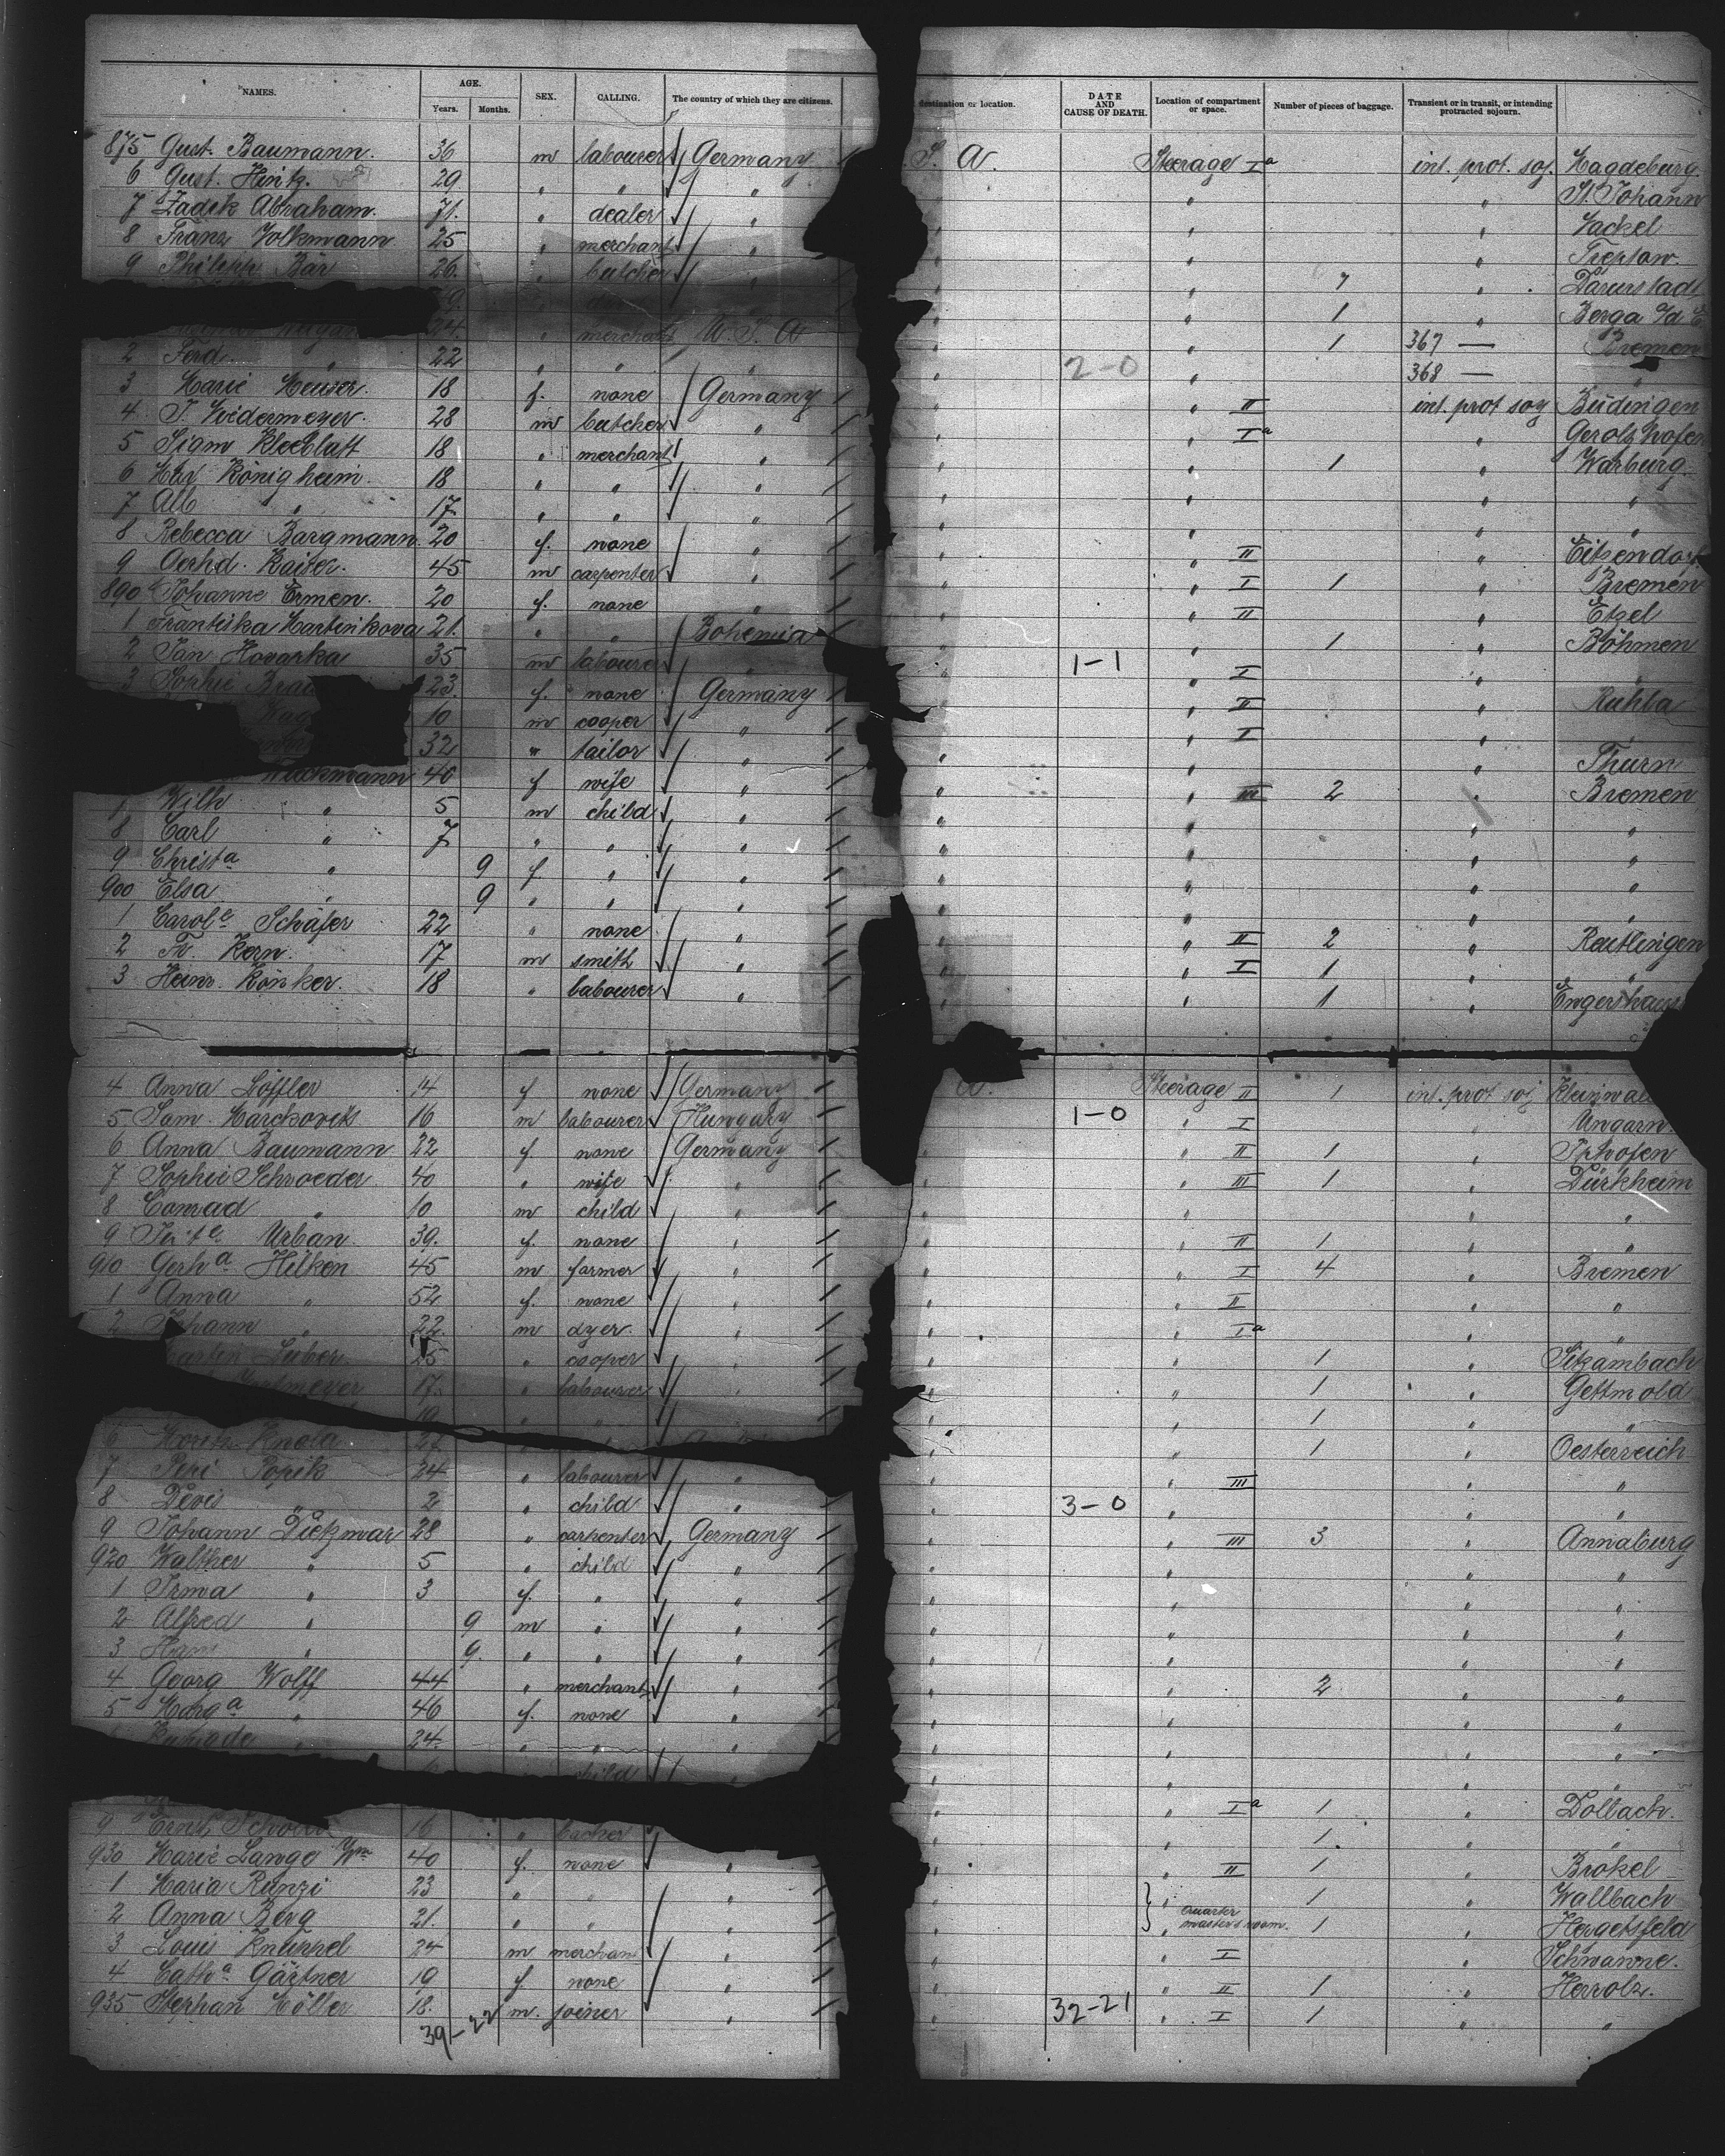 NAMES. AGE. Years. Months. SEX. CALLING. The country of which they are citizens. destination or location. DATE AND CAUSE OF DEATH. Location of compartment or space. Number of pieces of baggage. Transient or in transit, or intending protracted sojourn.
875 Gust. Baumann. 36 m labourer Germany S. A. Steerage I a int. prot. soj. Magdeburg.
6 Gust. Hintz. 29 " " " " " St. Johann
7 Zadek Abraham. 71. " dealer " " " Jackel
8 Franz Volkmann 25 " merchant " " " Treptow.
9 Philipp Bär 26. " butcher " " 7 "
29. " 1 " Berga a/d E
24 " merchant U. S. A " " 1 367 — Bremen
2 Ferd 22 " " " " 2-0 " 368 — "
3 Marie Meuser. 18 f. none Germany " " II int. prot soj Büdingen
4 J. Wedermeyer. 28 m butcher " " " I a " Gerolzhofen
5 Sigm Kleeblatt 18 " merchant " " " 1 " Warburg
6 Max Königheim. 18 " " " " " " "
7 Alb " 17. " " " " " " "
8 Rebecca Bargmann. 20 f. none " " " II " Eitzendorf
9 Gerhd. Kaiser. 45 m carpenter " " " I 1 " Bremen
890 Johanne Ermen. 20 f. none " " " II " Etzel
1 Frantiska Martinkova 21. " " Bohemia " " 1 " Böhmen
2 Jan Hovarka 35 m labourer " " 1-1 " I " "
3 Sophie 23. f. none Germany " " II " Ruhla
10 m cooper " " " I " "
32 " tailor " " " " Thurn
40 f wife " " " III 2 " Bremen
7 Wilh " 5 m child " " " " "
8 Carl " 7 " " " " " " "
9 Christa " 9 f. " " " " " "
900 Elsa " 9 " " " " " " "
1 Carole Schäfer 22 " none " " " II 2 " Reutlingen
2 Fr. Kern. 17 m smith " " " I 1 " "
3 Heinr. Rönker. 18 " labourer " " " 1 "
4 Anna Löffler 14 f none Germany A. Steerage II 1 int. prot soj
5 Sam. Marckovits 16 m labourer Hungary 1-0 " I " Ungarn.
6 Anna Baumann 22 f. none Germany " " II 1 " Iphofen
7 Sophie Schroeder 40 " wife " " " III 1 " Dürkheim
8 Conrad " 10 m child " " " " "
9 Urban. 39. f. none " " " II 1 " "
910 Gerha Hilken 45 m farmer " " " I 4 " Bremen
1 Anna " 52 f. none " " " II " "
2 Johann " 22. m dyer. " " " I a " "
25 " cooper " " " 1 " Sitzambach
17. " labourer " " " 1 " Gettmold
19 " " " 1 " "
6 Moritz Knola 27 " " " 1 " Oesterreich
7 Pepi Popik 24 " labourer " " " III " "
8 " 2 " child " " 3-0 " " "
9 Johann Dietzmar 28 " carpenter Germany " " III 3 " Annaburg
920 Walther " 5 " child " " " " "
1 Irma " 3 f. " " " " " "
2 Alfred " 9 m " " " " " "
3 Hans " 9. " " " " " " "
4 Georg Wolff 44 " merchant " " " 2 " "
5 Marga " 46 f. none " " " " "
24. " " " " " " "
child " " " "
I a 1 " Dollach.
9 Ernst 16 " backer " " 1. " "
930 Marie Lange Wwe 40 f. none " " " II 1 " Brokel
1 Maria Runzi 23 " " " " " 1 " Wallbach
2 Anna Berg 21. " " " " quarter master's room. 1 " Hergetsfeld
3 Louis Knüppel 24 m merchant " " " I " Schwanne.
4 Catha Gärtner 19 f. none " " " II 1 " Herrolz.
935 Stephan Möller 18. m. joiner " " 32-21 " I 1 " "
39-22